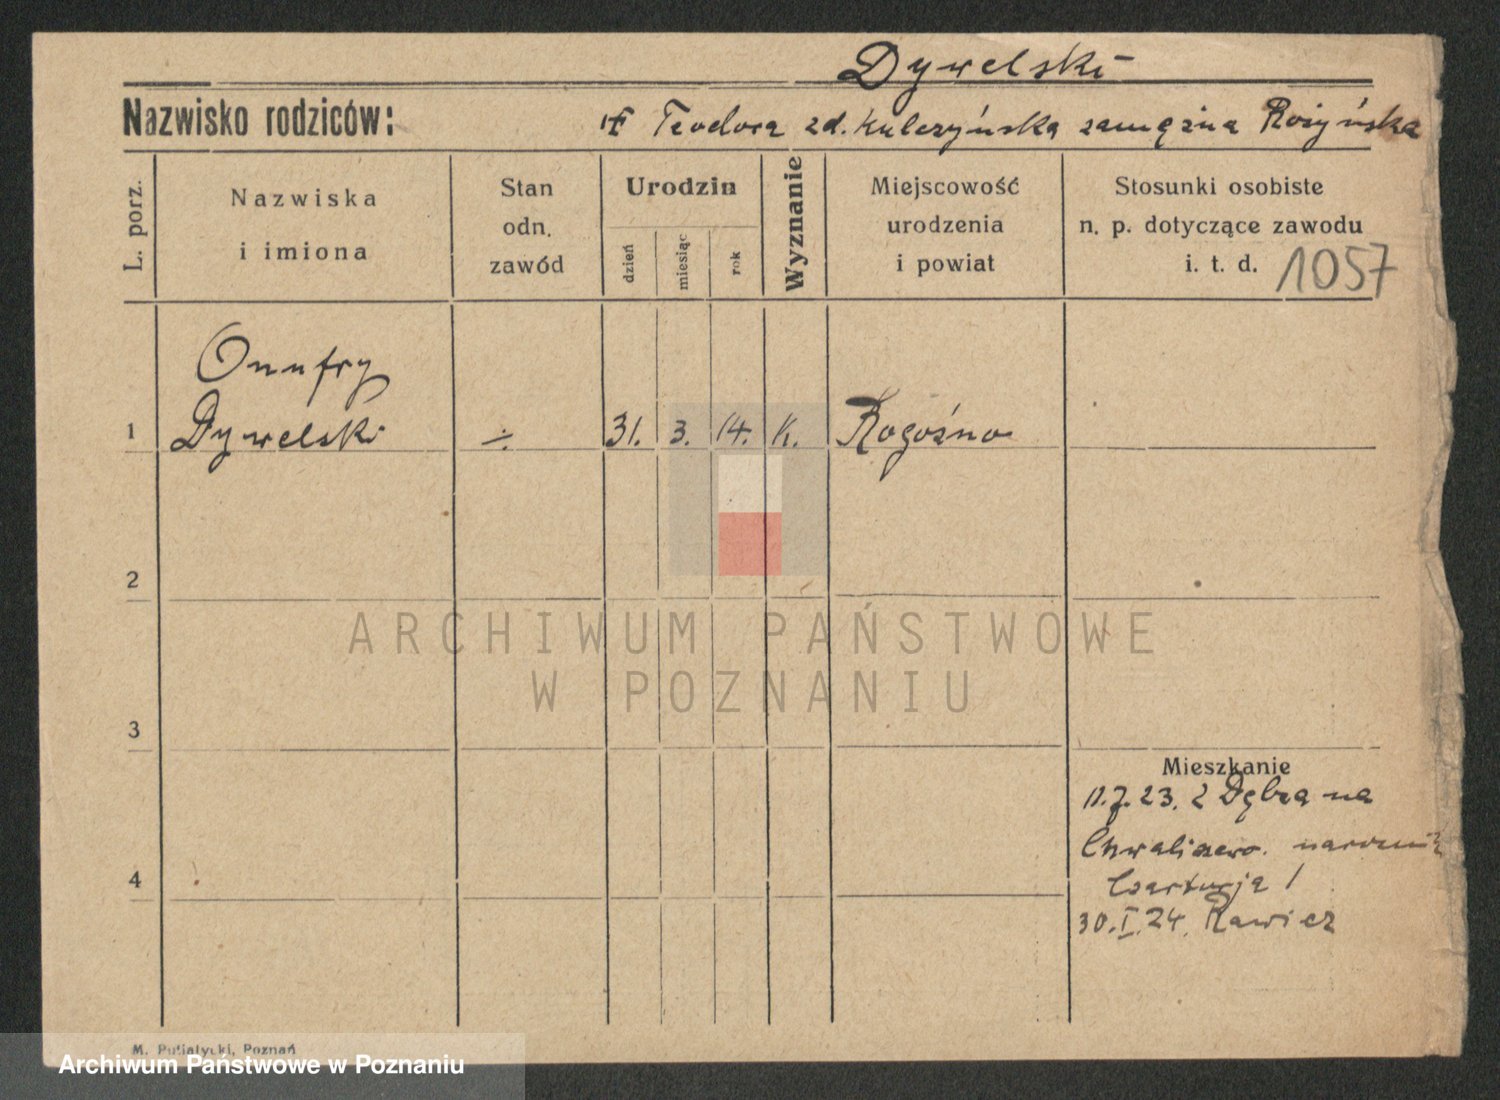 Dywelski
Nazwisko rodziców: Teodora zd. Kulczyńska zamężna Rożyńska
L. porz.
Nazwiska
i imiona
Stan
odn.
zawód
Urodzin
dzień
miesiąc
rok
Wyznanie
Miejscowość
urodzenia
i powiat
Stosunki osobiste
n. p. dotyczące zawodu
i. t. d. 1057
Onufry
1 Dywelski ÷ 31. 3. 14. K. Rogoźno
2
ARCHIWUM PAŃSTWOWE
W POZNANIU
3
Mieszkanie
11.7.23. z Dębca na
Chwaliszewo.
4
30.I.24. Rawicz
M. Putiatycki, Poznań
Archiwum Państwowe w Poznaniu